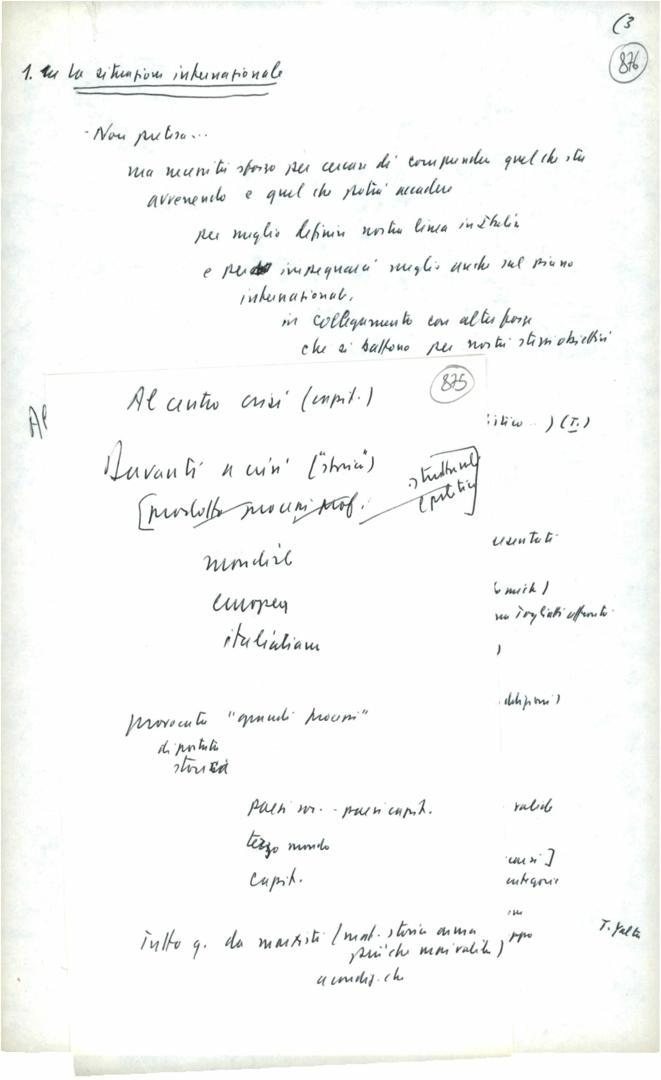 (3
876
1. La situazione internazionale
- Non pretesa...
ma necessità sforzo per cercare di comprendere quel che sta
avvenendo e quel che potrà accadere
per meglio definire nostra linea in Italia
e per impegnarci meglio anche sul piano
internazionale,
in collegamento con altre forze
che si battono per nostri stessi obiettivi
875
Al
Al centro crisi (capit.)
istico...) (T.)
Davanti a crisi ("storica")
strutturale
politica
[prodotto processi prof.
mondiale
europea
italiana
Togliatti
)
provocata "grandi processi"
di portata
storica
paesi soc. - paesi capit.
valide
terzo mondo
capit.
categorie
Tutto q. da marxisti (mat. storia arma
più che mai valida)
a condiz. che
T. Yalta